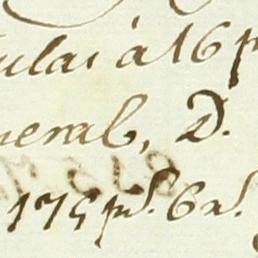 ular à 16 p
neral, D.
175 ps. 6 rs.